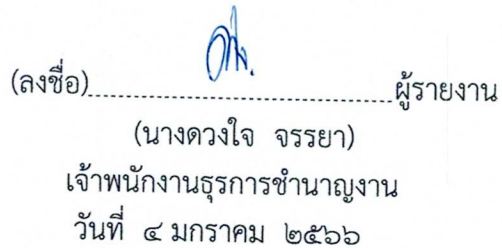 (ลงชื่อ)........................................ผู้รายงาน
(นางดวงใจ จรรยา)
เจ้าพนักงานธุรการชำนาญงาน
วันที่ ๔ มกราคม ๒๕๖๖